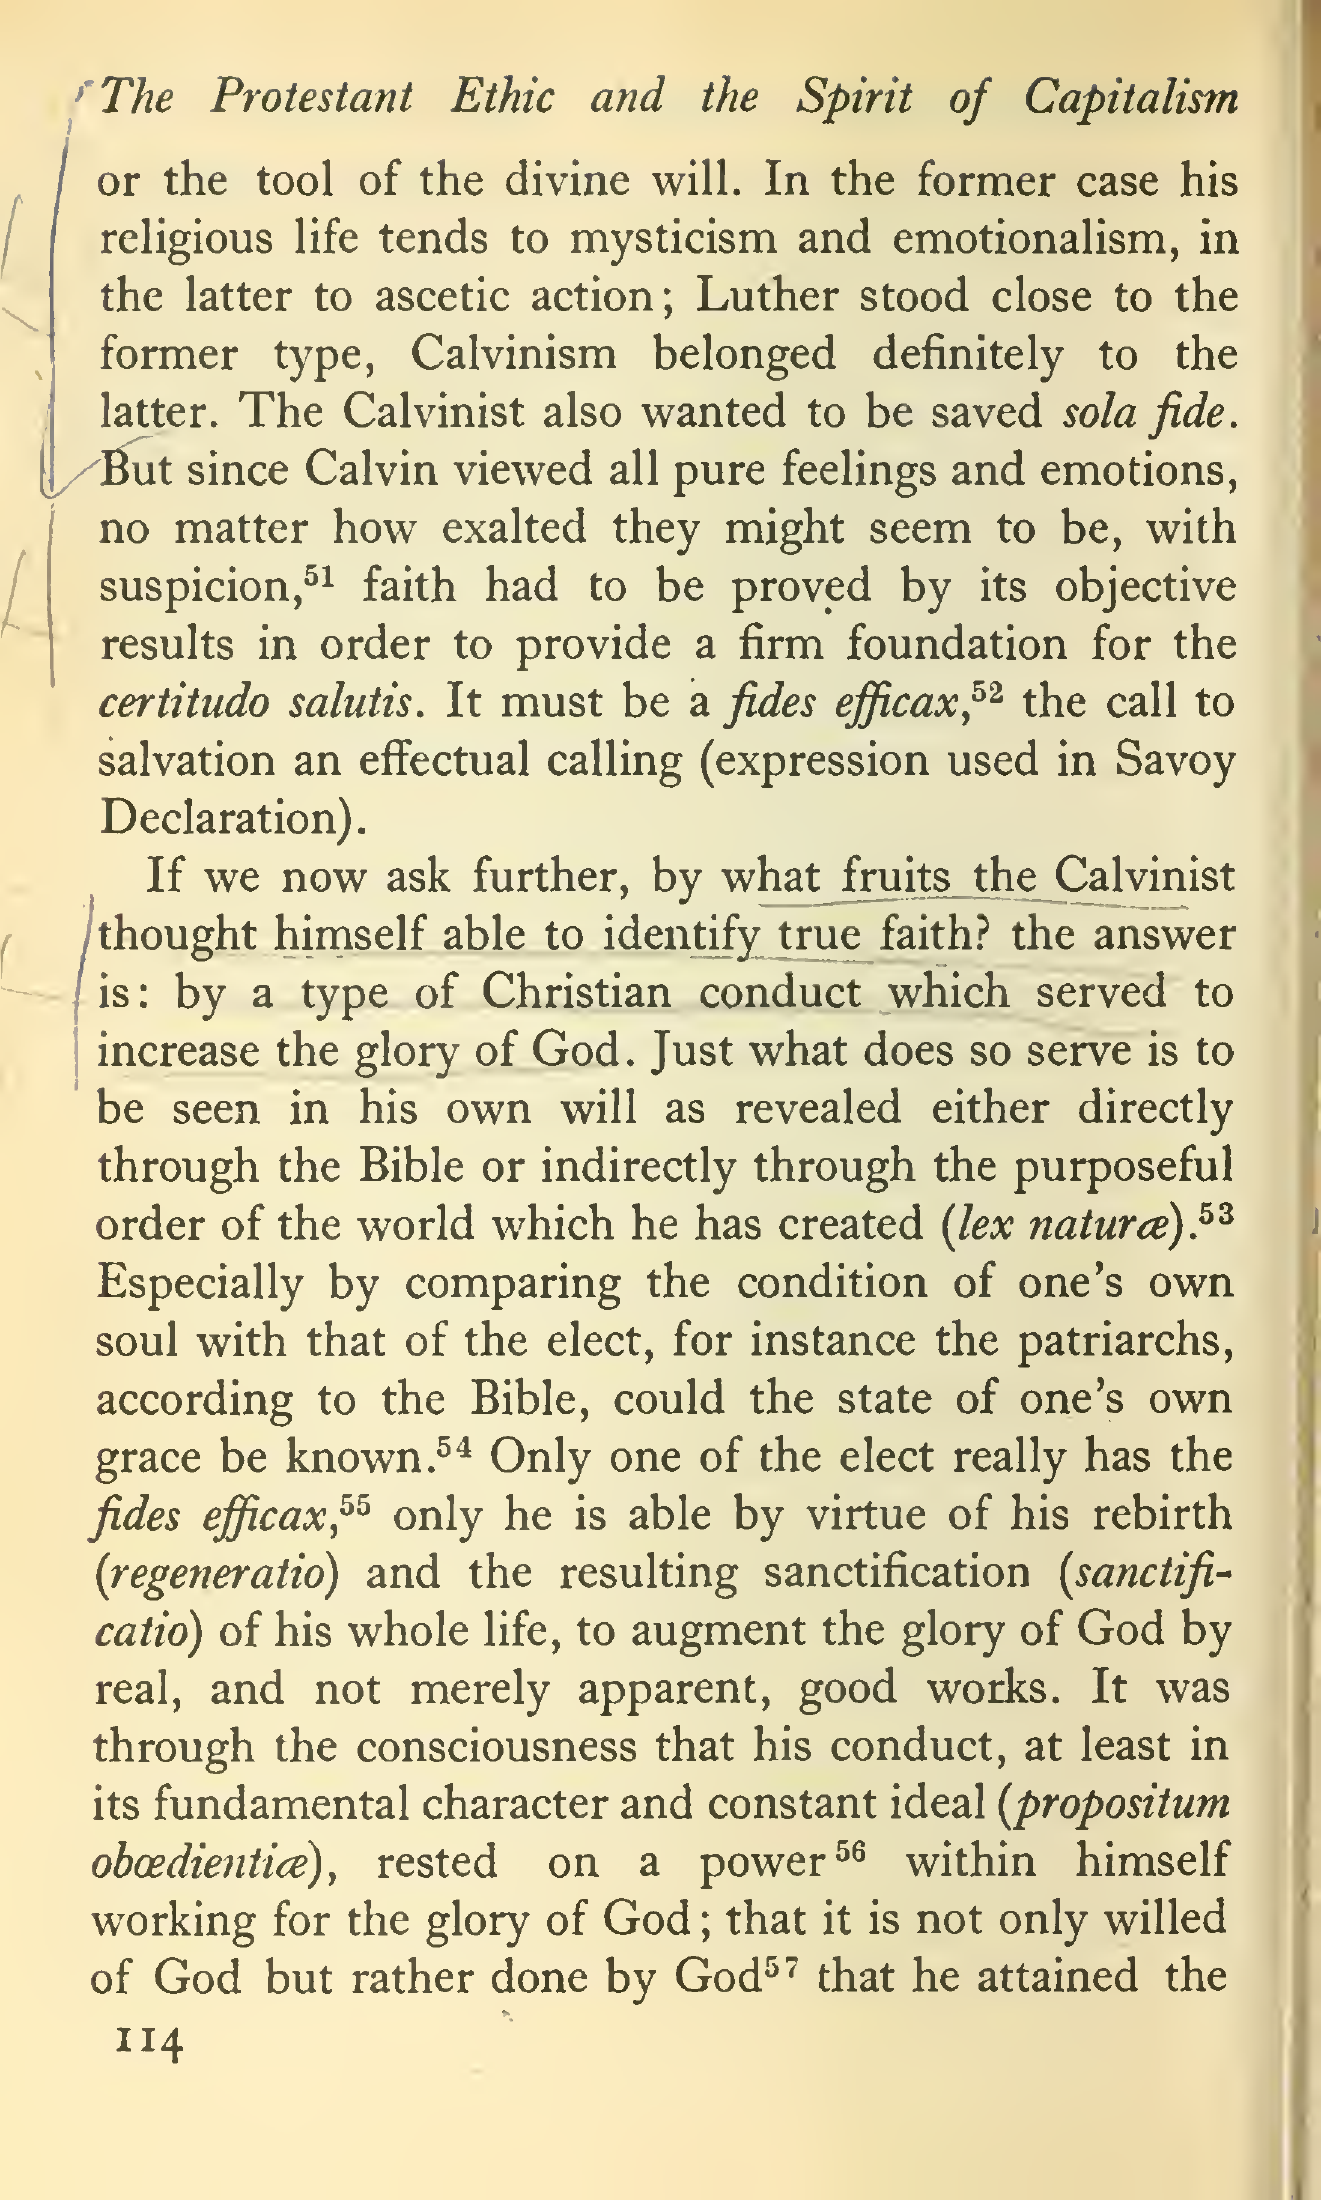 The Protestant Ethic and the Spirit of Capitalism
or the tool of the divine will. In the former case his
religious life tends to mysticism and emotionalism, in
the latter to ascetic action; Luther stood close to the
former type, Calvinism belonged definitely to the
latter. The Calvinist also wanted to be saved sola fide.
But since Calvin viewed all pure feelings and emotions,
no matter how exalted they might seem to be, with
suspicion,⁵¹ faith had to be proved by its objective
results in order to provide a firm foundation for the
certitudo salutis. It must be a fides efficax,⁵² the call to
salvation an effectual calling (expression used in Savoy
Declaration).
If we now ask further, by what fruits the Calvinist
thought himself able to identify true faith? the answer
is: by a type of Christian conduct which served to
increase the glory of God. Just what does so serve is to
be seen in his own will as revealed either directly
through the Bible or indirectly through the purposeful
order of the world which he has created (lex naturæ).⁵³
Especially by comparing the condition of one's own
soul with that of the elect, for instance the patriarchs,
according to the Bible, could the state of one's own
grace be known.⁵⁴ Only one of the elect really has the
fides efficax,⁵⁵ only he is able by virtue of his rebirth
(regeneratio) and the resulting sanctification (sanctifi-
catio) of his whole life, to augment the glory of God by
real, and not merely apparent, good works. It was
through the consciousness that his conduct, at least in
its fundamental character and constant ideal (propositum
obœdientiæ), rested on a power⁵⁶ within himself
working for the glory of God; that it is not only willed
of God but rather done by God⁵⁷ that he attained the
114